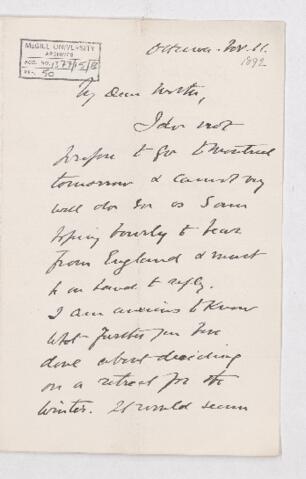 McGILL UNIVERSITY
ARCHIVES
ACC. NO.
REF. 50
Ottawa. Nov. 11.
1892
My dear
I do not
propose to go to Montreal
tomorrow & cannot very
well do so as I am
hoping hourly to hear
from England & must
be on hand to reply.
I am anxious to know
what further you have
done about deciding
on a retreat for the
winter. It would seem